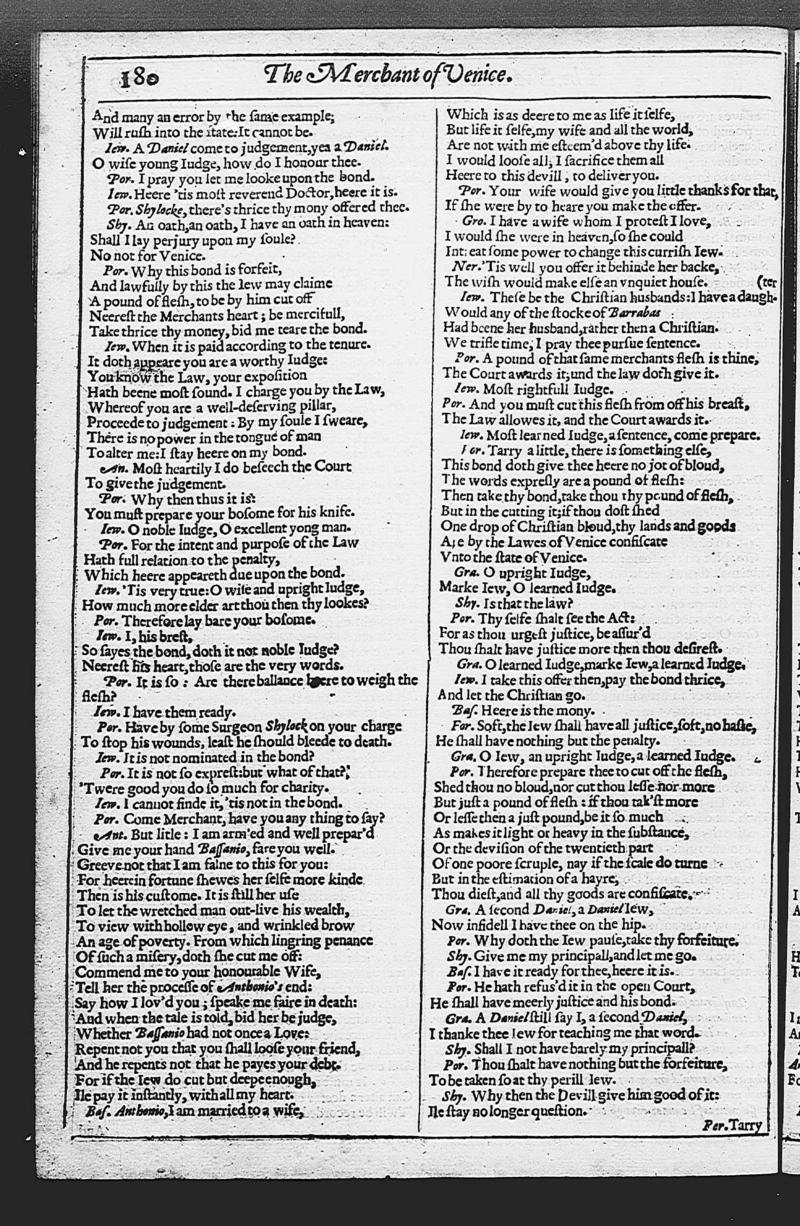 180
The Merchant of Venice.
And many an error by the same example;
Will rush into the state: It cannot be.
Iew. A Daniel come to judgement, yea a Daniel.
O wise young Iudge, how do I honour thee.
Por. I pray you let me looke upon the bond.
Iew. Heere 'tis most reverend Doctor, heere it is.
Por. Shylocke, there's thrice thy mony offered thee.
Shy. An oath, an oath, I have an oath in heaven:
Shall I lay perjury upon my soule?
No not for Venice.
Por. Why this bond is forfeit,
And lawfully by this the Iew may claime
A pound of flesh, to be by him cut off
Neerest the Merchants heart; be mercifull,
Take thrice thy money, bid me teare the bond.
Iew. When it is paid according to the tenure.
It doth appeare you are a worthy Iudge:
You know the Law, your exposition
Hath beene most sound. I charge you by the Law,
Whereof you are a well-deserving pillar,
Proceede to judgement: By my soule I sweare,
There is no power in the tongue of man
To alter me: I stay heere on my bond.
An. Most heartily I do beseech the Court
To give the judgement.
Por. Why then thus it is:
You must prepare your bosome for his knife.
Iew. O noble Iudge, O excellent yong man.
Por. For the intent and purpose of the Law
Hath full relation to the penalty,
Which heere appeareth due upon the bond.
Iew. 'Tis very true: O wise and upright Iudge,
How much more elder art thou then thy lookes?
Por. Therefore lay bare your bosome.
Iew. I, his brest,
So sayes the bond, doth it not noble Iudge?
Neerest his heart, those are the very words.
Por. It is so: Are there ballance heere to weigh the
flesh?
Iew. I have them ready.
Por. Have by some Surgeon Shylock on your charge
To stop his wounds, least he should bleede to death.
Iew. It is not nominated in the bond?
Por. It is not so exprest: but what of that?
'Twere good you do so much for charity.
Iew. I cannot finde it, 'tis not in the bond.
Por. Come Merchant, have you any thing to say?
Ant. But litle: I am arm'ed and well prepar'd
Give me your hand Bassanio, fare you well.
Greeve not that I am falne to this for you:
For heerein fortune shewes her selfe more kinde
Then is his custome. It is still her use
To let the wretched man out-live his wealth,
To view with hollow eye, and wrinkled brow
An age of poverty. From which lingring penance
Of such a misery, doth she cut me off:
Commend me to your honourable Wife,
Tell her the processe of Anthonio's end:
Say how I lov'd you; speake me faire in death:
And when the tale is told, bid her be judge,
Whether Bassanio had not once a Love:
Repent not you that you shall loose your friend,
And he repents not that he payes your debt.
For if the Iew do cut but deepe enough,
Ile pay it instantly, with all my heart.
Bas. Anthonio, I am married to a wife,
Which is as deere to me as life it selfe,
But life it selfe, my wife and all the world,
Are not with me esteem'd above thy life.
I would loose all, I sacrifice them all
Heere to this devill, to deliver you.
Por. Your wife would give you little thanks for that,
If she were by to heare you make the offer.
Gro. I have a wife whom I protest I love,
I would she were in heaven, so she could
Intreat some power to change this currish Iew.
Ner. 'Tis well you offer it behinde her backe,
The wish would make else an vnquiet house. (ter
Iew. These be the Christian husbands: I have a daugh-
Would any of the stocke of Barrabas
Had beene her husband, rather then a Christian.
We trifle time, I pray thee pursue sentence.
Por. A pound of that same merchants flesh is thine,
The Court awards it, und the law doth give it.
Iew. Most rightfull Iudge.
Por. And you must cut this flesh from off his breast,
The Law allowes it, and the Court awards it.
Iew. Most learned Iudge, a sentence, come prepare.
Por. Tarry a little, there is something else,
This bond doth give thee heere no jot of bloud,
The words expresly are a pound of flesh:
Then take thy bond, take thou thy pound of flesh,
But in the cutting it, if thou dost shed
One drop of Christian bloud, thy lands and goods
Are by the Lawes of Venice confiscate
Vnto the state of Venice.
Gra. O upright Iudge,
Marke Iew, O learned Iudge.
Shy. Is that the law?
Por. Thy selfe shalt see the Act:
For as thou urgest justice, be assur'd
Thou shalt have justice more then thou desirest.
Gra. O learned Iudge, marke Iew, a learned Iudge.
Iew. I take this offer then, pay the bond thrice,
And let the Christian go.
Bas. Heere is the mony.
For. Soft, the Iew shall have all justice, soft, no haste,
He shall have nothing but the penalty.
Gra. O Iew, an upright Iudge, a learned Iudge.
Por. Therefore prepare thee to cut off the flesh,
Shed thou no bloud, nor cut thou lesse nor more
But just a pound of flesh: if thou tak'st more
Or lesse then a just pound, be it so much
As makes it light or heavy in the substance,
Or the devision of the twentieth part
Of one poore scruple, nay if the scale do turne
But in the estimation of a hayre,
Thou diest, and all thy goods are confiscate.
Gra. A second Daniel, a Daniel Iew,
Now infidell I have thee on the hip.
Por. Why doth the Iew pause, take thy forfeiture.
Shy. Give me my principall, and let me go.
Bas. I have it ready for thee, heere it is.
Por. He hath refus'd it in the open Court,
He shall have meerly justice and his bond.
Gra. A Daniel still say I, a second Daniel,
I thanke thee Iew for teaching me that word.
Shy. Shall I not have barely my principall?
Por. Thou shalt have nothing but the forfeiture,
To be taken so at thy perill Iew.
Shy. Why then the Devill give him good of it:
Ile stay no longer question.
Por. Tarry